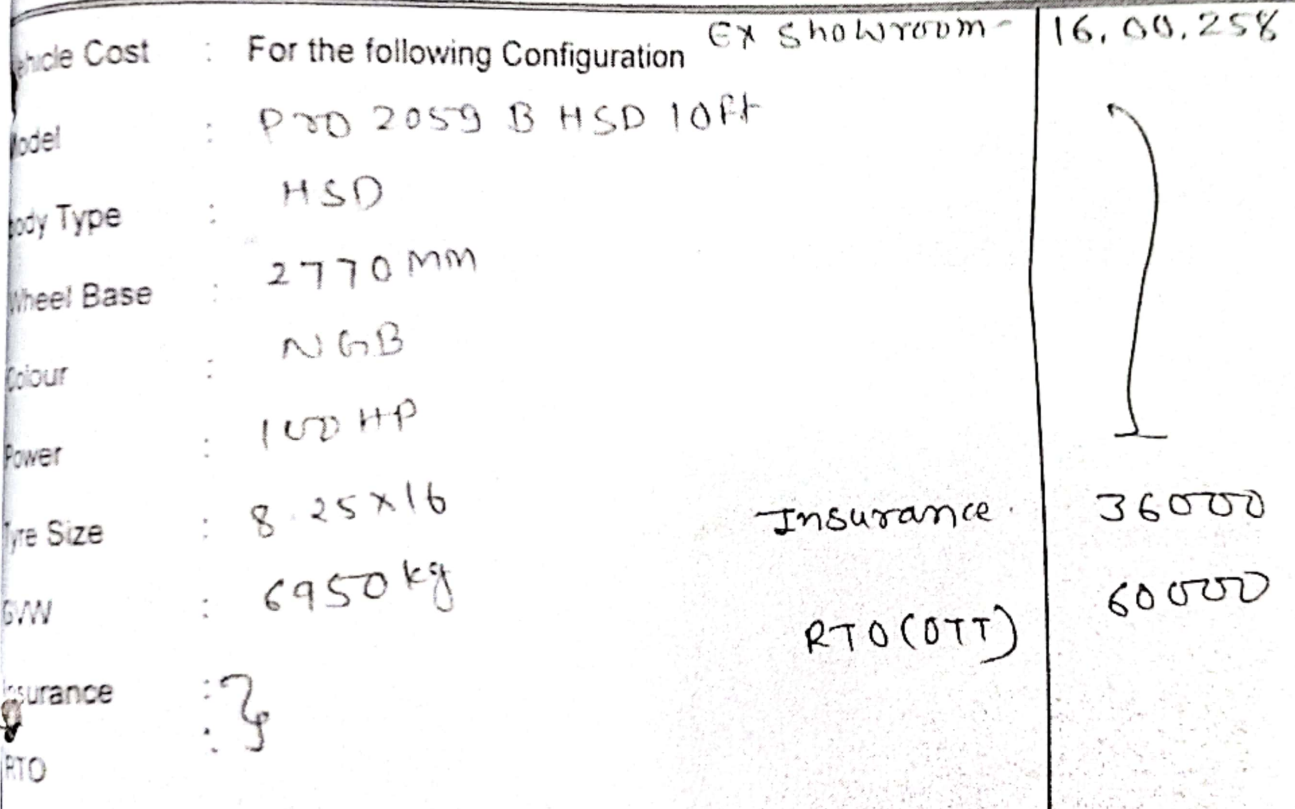 Vehicle Cost : For the following Configuration Ex Showroom - 16,00,258
Model : Pro 2059 B HSD 10ft
Body Type : HSD
Wheel Base : 2770 mm
Colour : NGB
Power : 100 HP
Tyre Size : 8.25x16 Insurance. 36000
GVW : 6950 kg RTO (OTT) 60000
Insurance :
RTO :